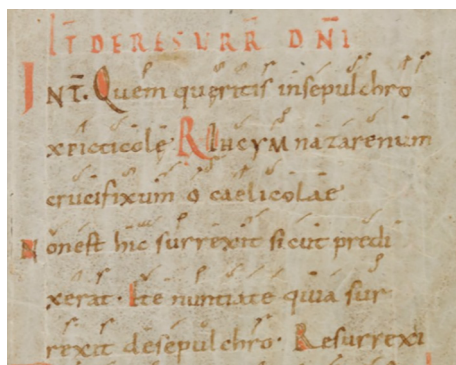 IT̄ DE RESURR̄ DN̄I
INT̄. Quem queritis insepulchro
xpicticole R IHCYM nazarenum
crucifixum o caelicolae
Non est hic surrexit sicut predi
xerat. Ite nuntiate quia sur
rexit desepulchro. Resurrexi